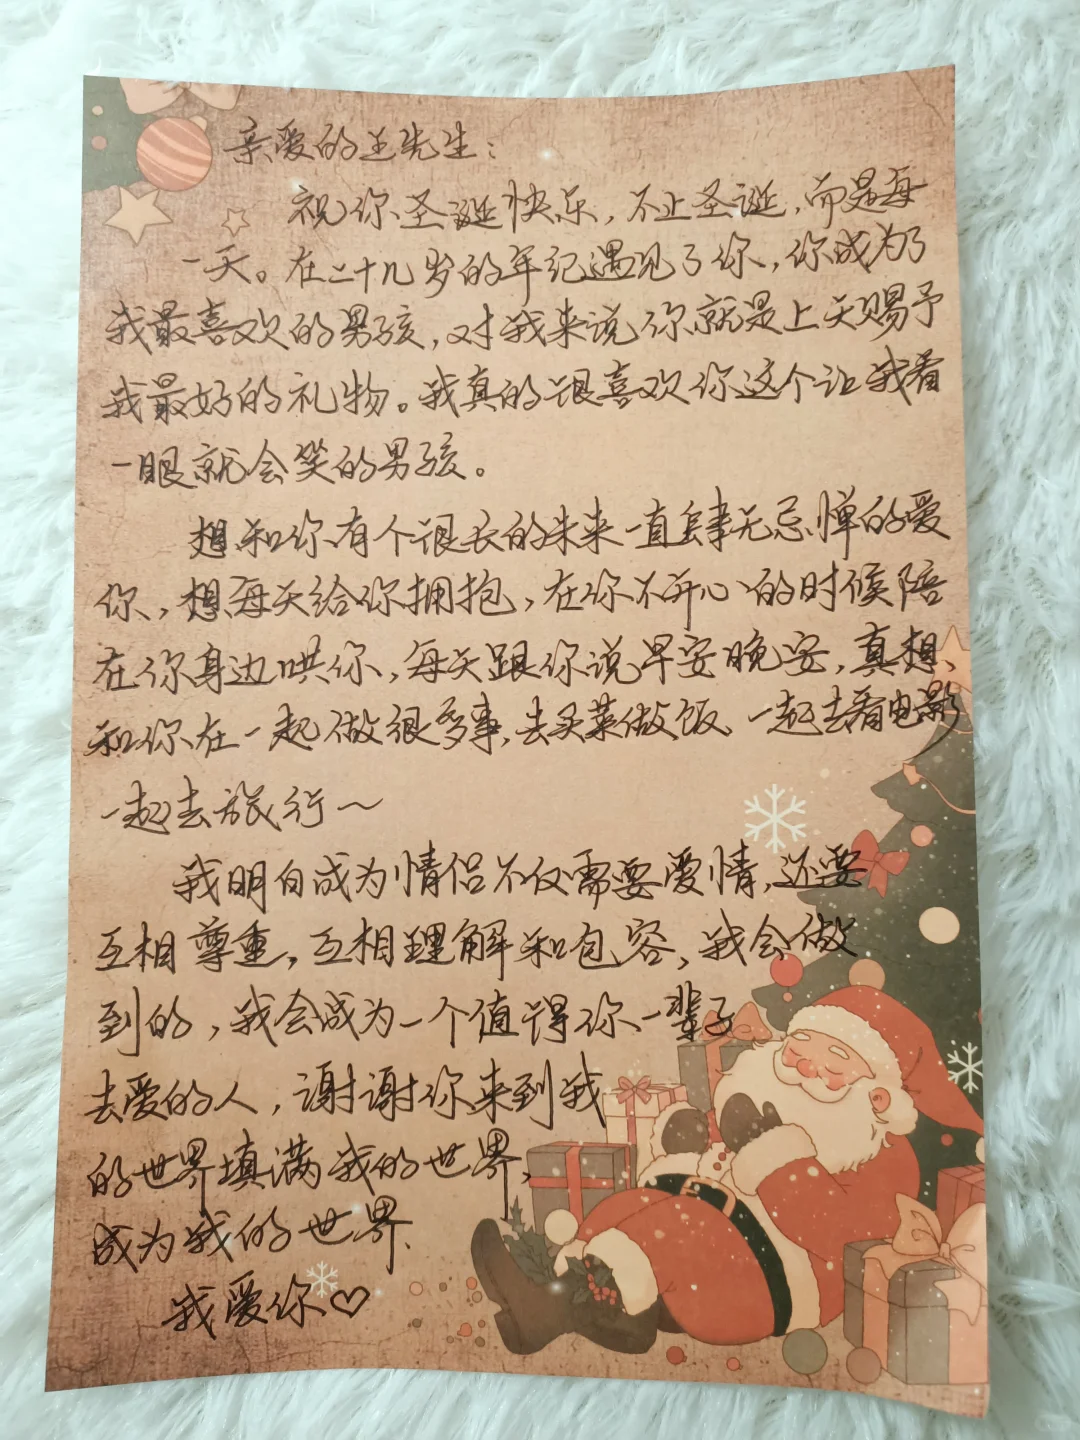 亲爱的王先生：
祝你圣诞快乐，不止圣诞，而是每
一天。在二十几岁的年纪遇见了你，你成为了
我最喜欢的男孩，对我来说你就是上天赐予
我最好的礼物。我真的很喜欢你这个让我看
一眼就会笑的男孩。
想和你有个很长的未来一直肆无忌惮的爱
你，想每天给你拥抱，在你不开心的时候陪
在你身边哄你，每天跟你说早安晚安，真想
和你在一起做很多事，去买菜做饭、一起去看电影
一起去旅行～
我明白成为情侣不仅需要爱情，还要
互相尊重，互相理解和包容，我会做
到的，我会成为一个值得你一辈子
去爱的人，谢谢你来到我
的世界填满我的世界，
成为我的世界.
我爱你♡